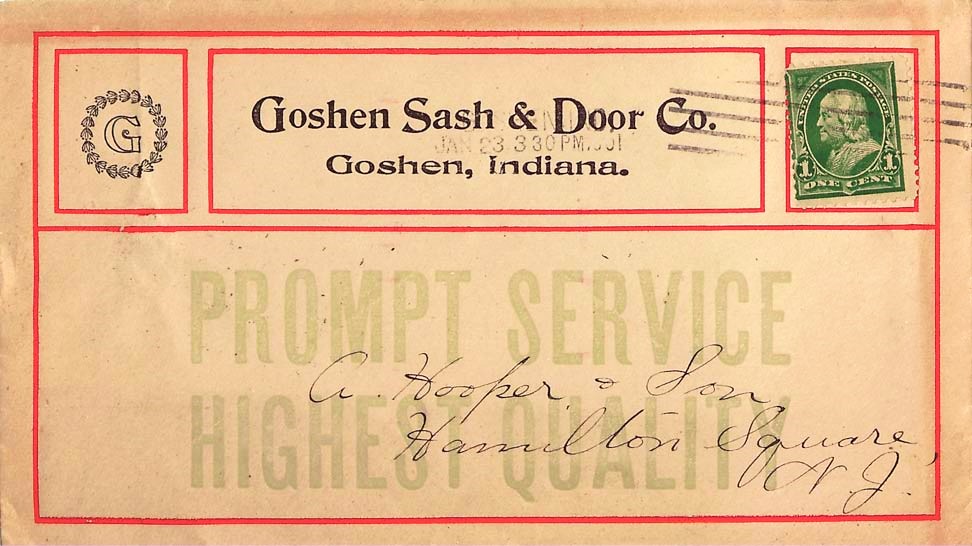 G
Goshen Sash & Door Co.
JAN 23 3 30 PM
Goshen, Indiana.
UNITED STATES POSTAGE
1 1
ONE CENT
PROMPT SERVICE
A. Hooper & Son
HIGHEST QUALITY
Hamilton Square
N. J.